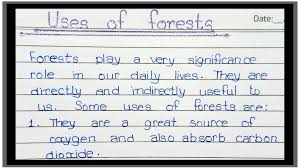 Uses of forests
Date:
Forests play a very significance
role in our daily lives. They are
directly and indirectly useful to
us. Some uses of forests are:
1. They are a great source of
oxygen and also absorb carbon
dioxide.